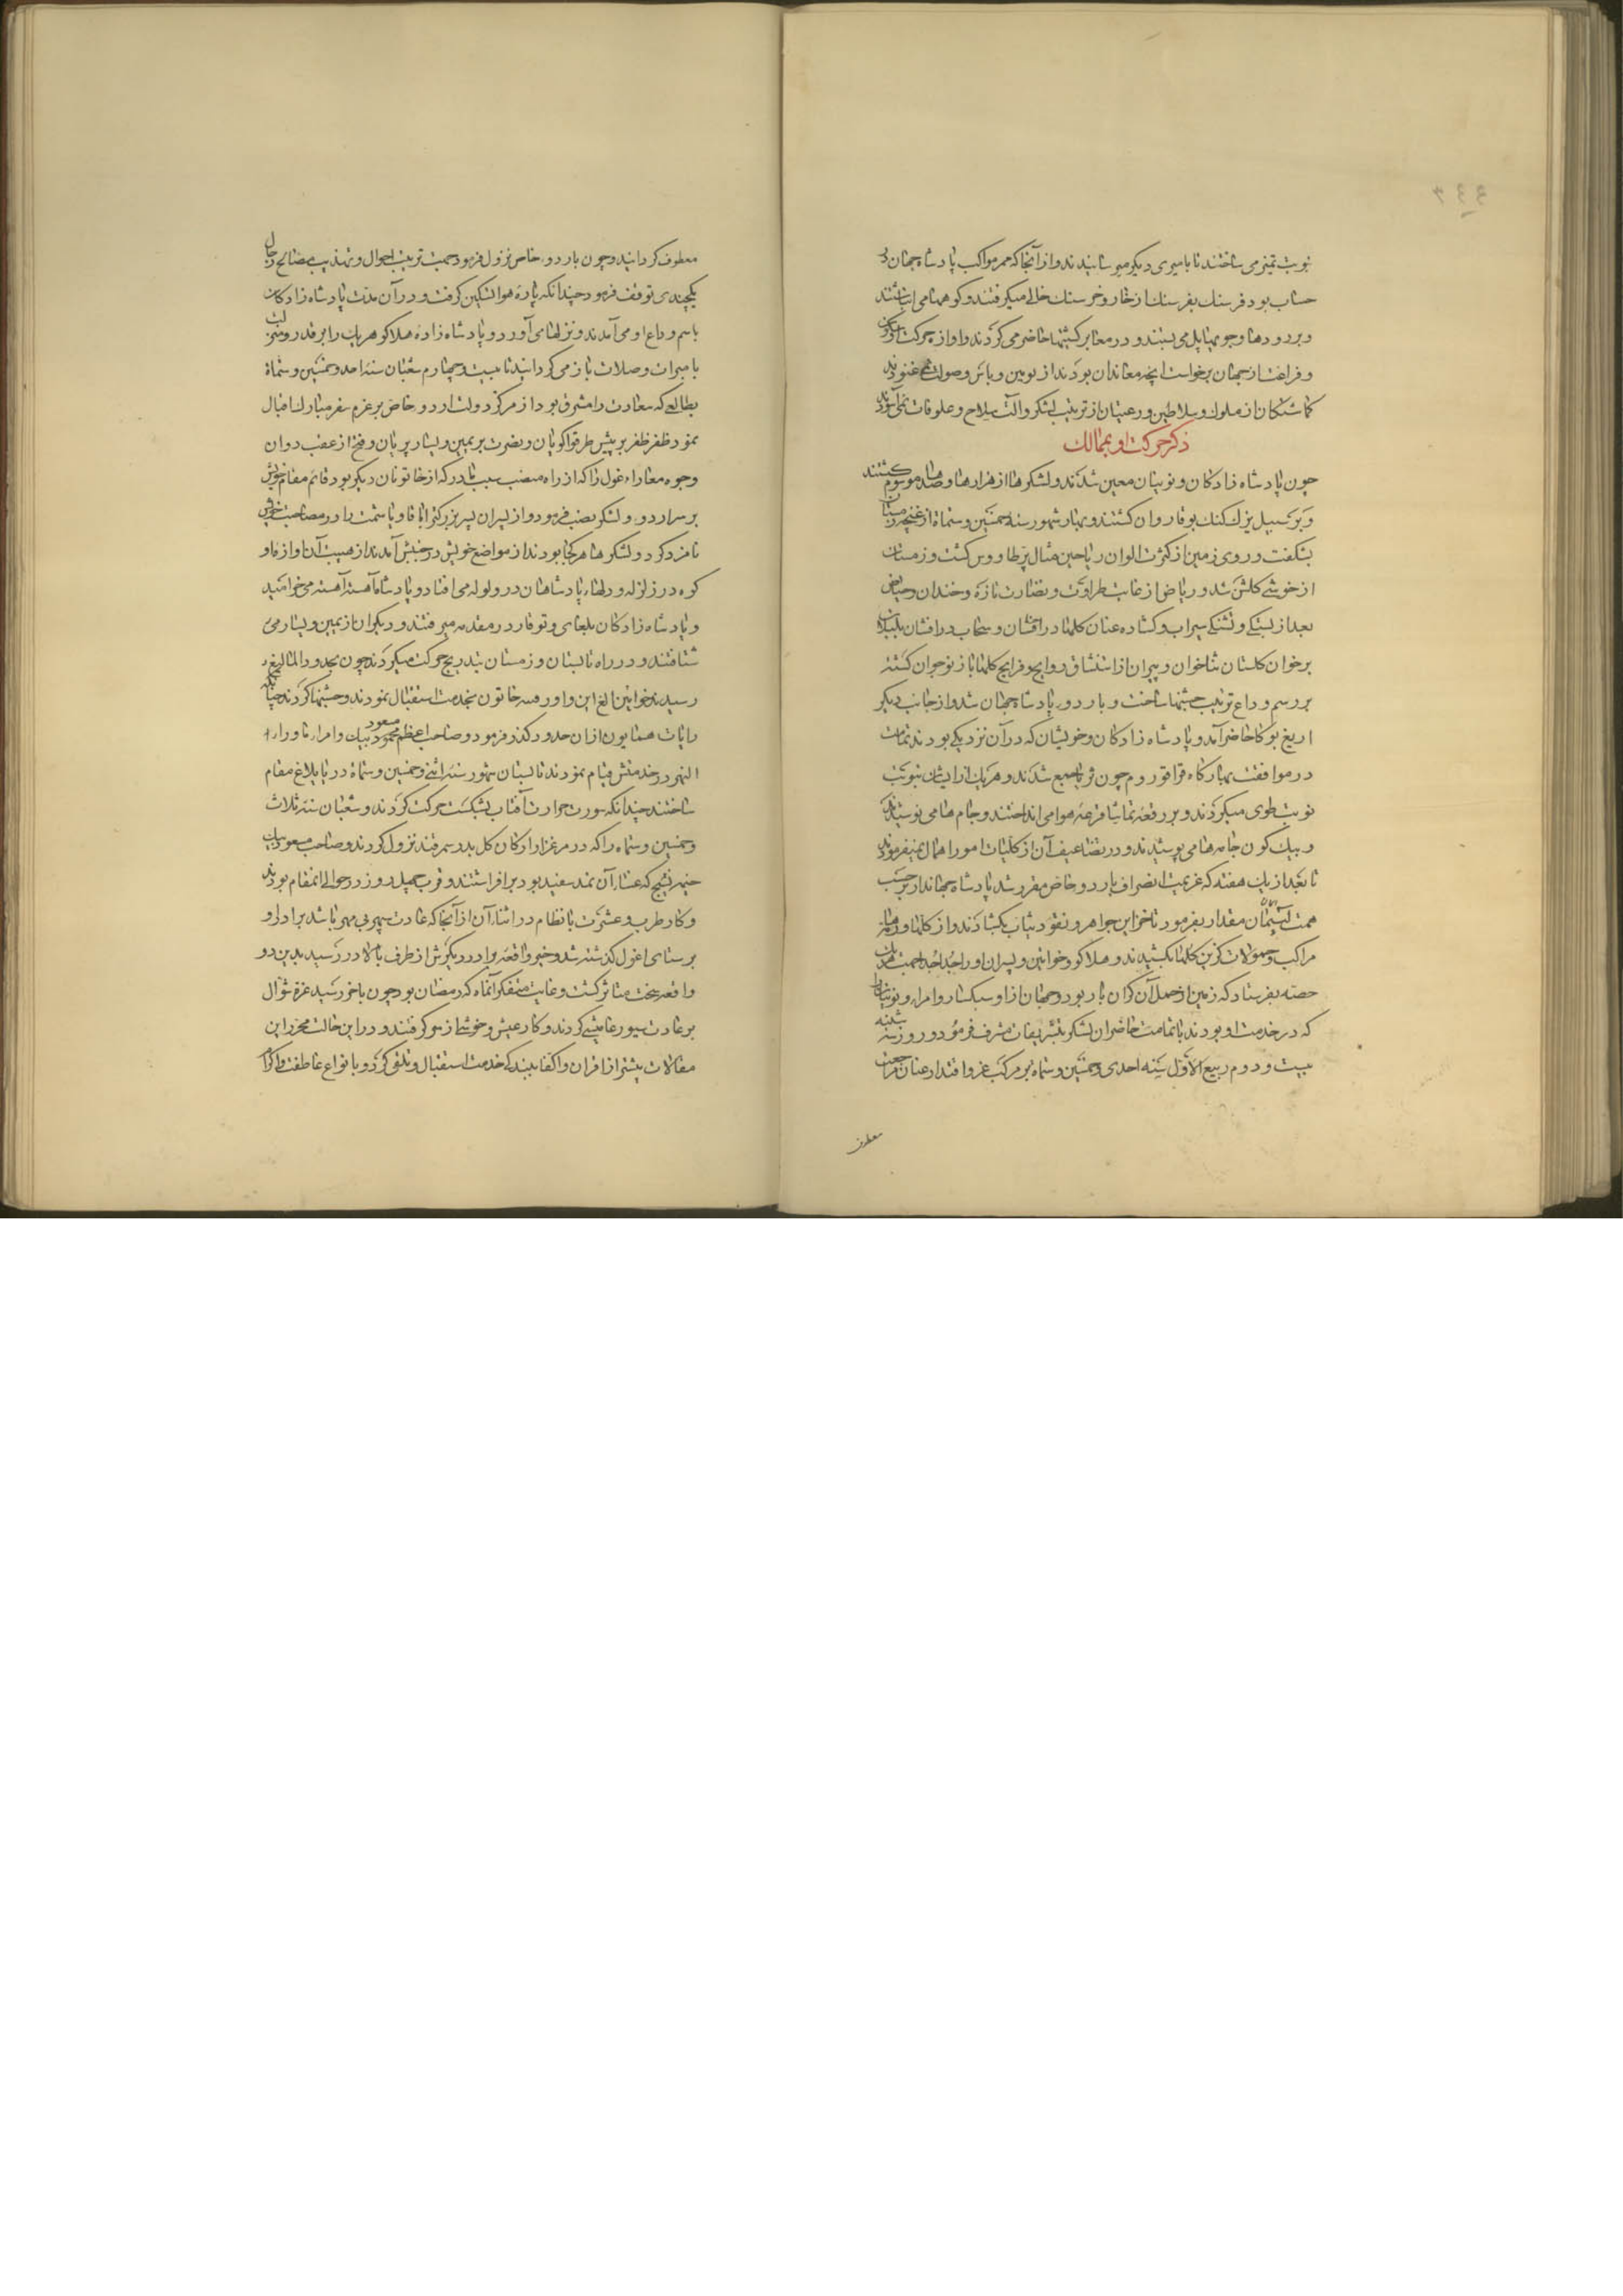 نوبت تمیز می ساختند تا با میری دیکر میرسانیدند و از آنجا که ممر مواکب پادشاه جهان در
حساب بود فرسنك بفرسنك از خار و خرسنك خالی میکرفتند و کوهها می انباشتند
و بر رودها و جویها پل می بستند و در معابر کشتیها حاضر می کردند و آواز حرکت او سکون
و فراغت از جهان برخواست آنچه معاندان بودند از بومین و باس و صولت نمی غنودند
کماشتکان از ملوك و سلاطین و رعیتان از ترتیب لشکر و آلت سلاح و علوفات نمی آسودند
ذکر حرکت او بممالك
چون پادشاه زادکان و نوینان معین شدند و لشکرها از هزارها و صدها موسوم کشتند
و بر سبیل یزك کتك بوقا روان کشتند و بهار شهور سنه خمسین و ستماة از غنچه زمستان
بشکفت و روی زمین از کثرت الوان ریاحین مثال پر طاووس کشت و زمستان
از خوشی کلشن شد و ریاض از غایت طراوت و نضارت تازه و خندان و حیاض
بعد از بستکی و تشنکی سیراب و کشاده عنان کلها در افشان و سحاب در افشان بلبلان
بر خوان کلستان ثناخوان و پیران از استنشاق روایح و فرایح کلها باز نوجوان کشته
بر رسم وداع ترتیب جشنها ساخت و باردو پادشاه جهان شد و از جانب دیکر
اریغ بوکا حاضر آمد و پادشاه زادکان و خویشان که در آن نزدیکی بودند تمامت
در موافقت ببارکاه قراقوروم چون ثریا جمع شدند و هر یك از ایشان بنوبت
نوبت طوی میکردند و بر رقعه تماشا قرعه هوا می انداختند و جام ها می نوشیدند
و بیك کون جامه ها می پوشیدند و در تضاعیف آن از کلیات امور اهمال نمیفرمودند
تا بعد از یك هفته که عزیمت انصراف باردو خاص مقرر شد پادشاه جهاندار بر حسب
همت آسمان مقدار بفرمود تا خزاین جواهر و نقود ثیاب بکشادند و از کلها و رمها
مراکب و حمولات کزین کلها بکشیدند و هلاکو و خواتین و پسران او را جدا جدا جهت هر یك
حصه بفرستاد که زمین از حمل آن کران بار بود و جهان از او سبکسار و امراء و نوینان
که در خدمت او بودند با تمامت حاضران لشکر بتشریفات مشرف فرمود و روز شنبه
بیست و دوم ربیع الاول سنه احدی و خمسین و ستماه بر مرکب عز و اقتدار عنان مراجعت
معطوف
معطوف کردانید و چون باردو خاص نزول فرمود جهت ترتیب احوال و تهذیب مصالح رجال
یکچندی توقف فرمود چندانکه پاره هوا تسکین کرفت و در آن مدت پادشاه زادکان
باسم وداع او می آمدند و نزلها می آورد و پادشاه زاده هلاکو هر یك را بر قدر و منزلت
با مبرات و صلات باز می کردانید تا بیست و چهارم شعبان سنه احد و خمسین و ستماة
بطالعی که سعادت را مشرق بود از مرکز دولت اردو خاص بر عزم سفر مبارك اقبال
نمود ظفر ظفر بر پیش طرقوا کویان و نصرت بر یمین و یسار پریان و فتح از عقب دوان
وجومغار اغول را که از راه منصب سبب مادر که از خاتونان دیکر بود قائم مقام خویش
بر سر اردو و لشکر نصب فرمود و از پسران پسر بزرکتر اباقا و یاشمت را در مصاحبت خویش
نامزد کرد و لشکرها هر کجا بودند از مواضع خویش در جنبش آمدند از هیبت آن آوازه او
کوه در زلزله و دلهاء پادشاهان در ولوله می افتاد و پادشاه آهسته آهسته می خرامید
و پادشاه زادکان بلغای و توقار در مقدمه میرفتند و دیکران از یمین و یسار می
شتافتند و در راه تابستان و زمستان بتدریج حرکت میکردند چون بحدود المالیغ
رسیدند خواتین الغ ایف و اورقنه خاتون بخدمت استقبال نمودند و جشنها کردند چنانکه
رایات همایون از آن حدود کذر فرمود و صاحب اعظم مسعود محمود بیك و امراء ماوراء
النهر در خدمتش قیام نمودند تابستان شهور سنه اثنی و خمسین و ستماة در یایلاغ مقام
ساختند چندانکه سورت حرارت آفتاب بشکست حرکت کردند و شعبان سنه ثلاث
و خمسین و ستماه را که در مرغزار کان کل بدر سمرقند نزول کردند و صاحب مسعود بیك
خیمه نسیج که غشاء آن نمد سفید بود برافراشتند و قرب چهل روز در حوالی انمقام بودند
و کار طرب و عشرت با نظام در اثناء آن از آنجا که عادت سپهر بی مهر باشد برادر او
برسنتای اغول کذشته شد و خبر واقعه برادر دیکرش از طرف بالا در رسید بدین دو
واقعه سخت متاثر کشت و غایت متفکر آنماه که رمضان بود چون باخر رسید غره شوال
بر عادت سیورغامیشی کردند و کار عیش و خوشی از سر کرفتند و در این حالت محرر این
مقالات بیشتر از اقران و اکفا ببندکی خدمت استقبال و تلقی کرد و بانواع عاطفت و اکرام